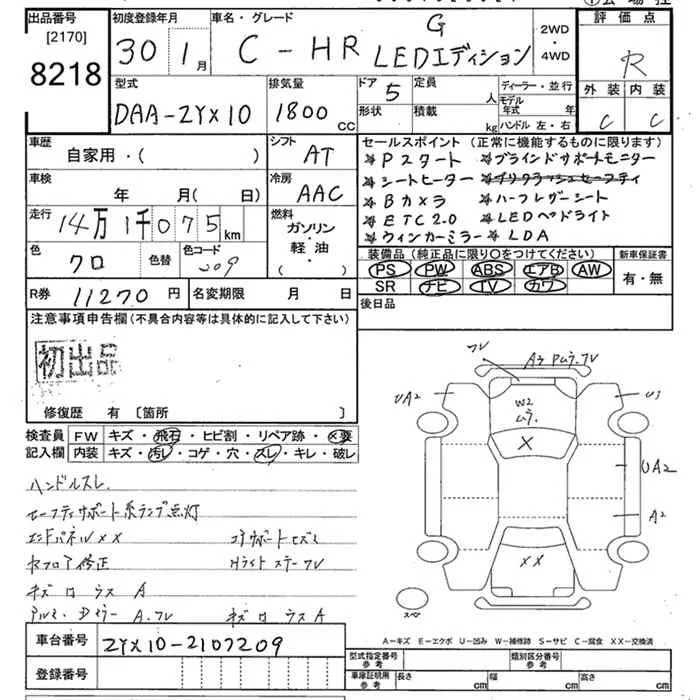 出品番号 初度登録年月 車名・グレード 評価点
[2170]
8218
30 1月 C-HR G LEDエディション
2WD・4WD
R
外装 内装
C C
型式 排気量 ドア 定員 ディーラー・並行
DAA-ZYX10 1800CC 5 人 モデル年式 年
形状 積載 kg ハンドル 左・右
車歴 シフト セールスポイント (正常に機能するものに限ります)
自家用・( ) AT
☆Pスタート ☆ブラインドサポートモニター
車検 冷房 ☆シートヒーター
年 月(日) AAC ☆Bカメラ ☆ハーフレザーシート
走行 14万1千075km 燃料 ☆ETC2.0 ☆LEDヘッドライト
ガソリン・軽・油・( ) ☆ウィンカーミラー ☆LDA
色 クロ 色替 色コード 209
装備品(純正品に限り○をつけてください) 新車保証書
PS PW ABS エアB AW 有・無
SR ナビ TV カワ
R券 11270円 名変期限 月 日 後日品
注意事項申告欄(不具合内容等は具体的に記入して下さい)
初出品
修復歴 有 [箇所 ]
検査員 FW キズ・飛石・ヒビ割・リペア跡・×要
記入欄 内装 キズ・汚レ・コゲ・穴・スレ・キレ・破レ
ハンドルスレ
セーフティサポート系ランプ点灯
エンドパネル××
修正 Hライトステー フレ
フレ
A3
UA2 U3
W2
ムラ
×
UA2
A2
××
スペア
A-キズ E-エクボ U-凹み W-補修跡 S-サビ C-腐食 XX-交換済
車台番号 ZYX10-2107209
登録番号
型式指定番号 参考 類別区分番号 参考
車庫証明用 参考 長さ cm 幅 cm 高さ cm